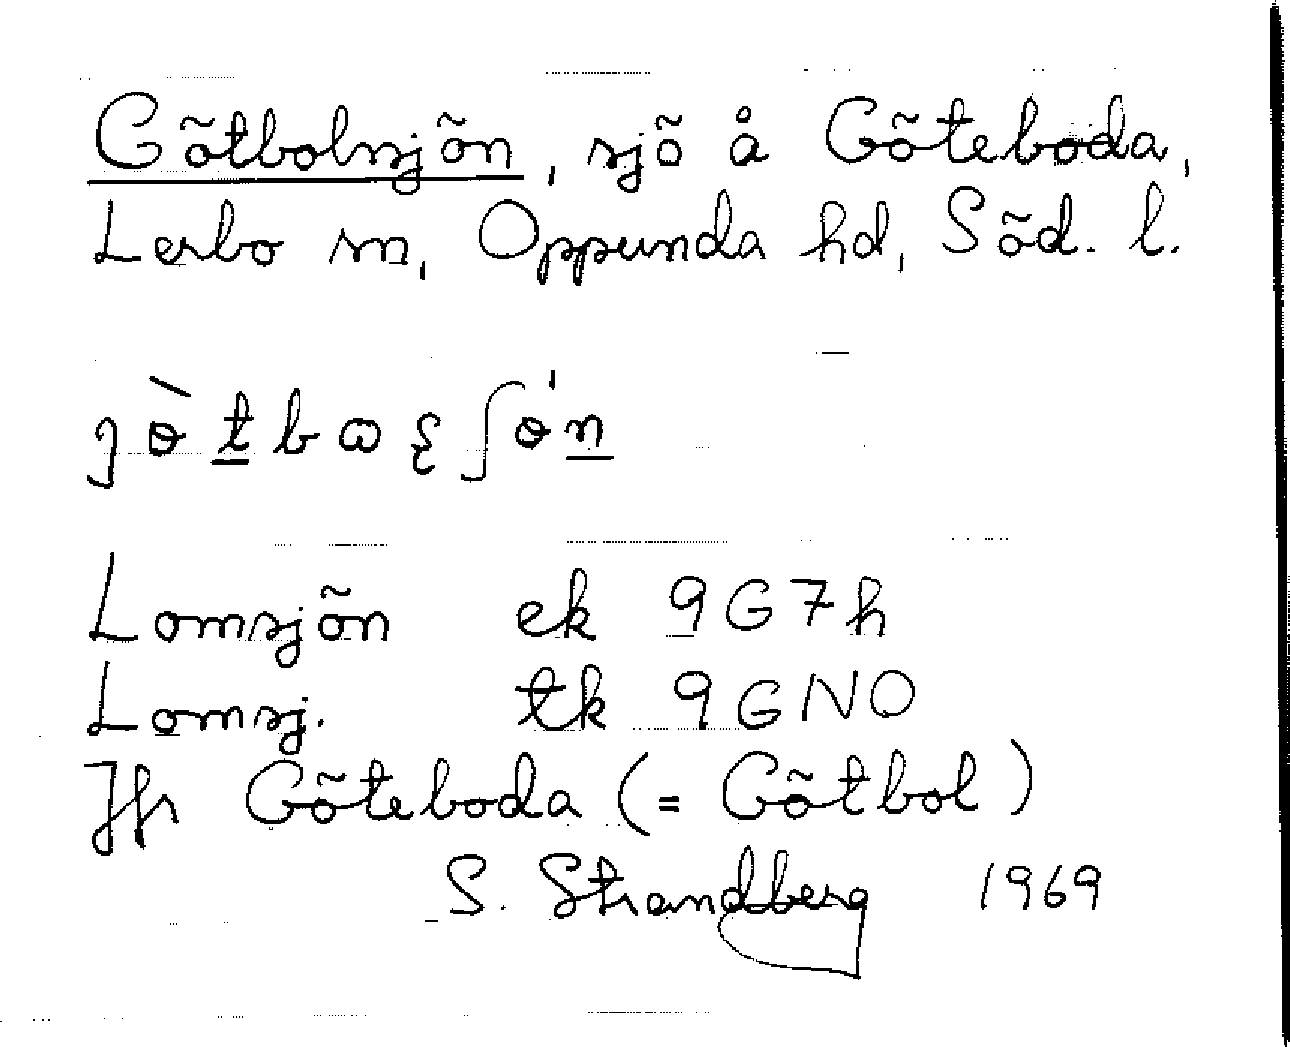 Götbolnsjön, sjö å Göteboda,
Lerbo sn, Oppunda hd, Söd. l.
Lomsjön ek 9G7h
Lomsj. tk 9GNO
Jfr Göteboda (= Götbol)
S. Strandberg 1969